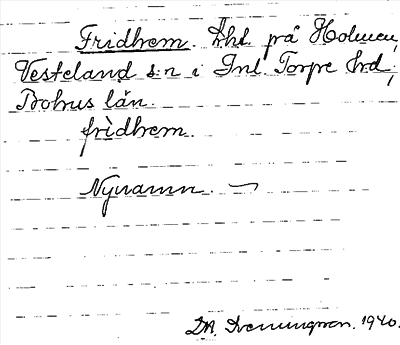 Fridhem. Lht. på Holmen,
Vesteland s:n i Inl. Torpe hrd.,
Bohus län.
frìdhem.
Nynamn.
D.A. Svenningson. 1940.